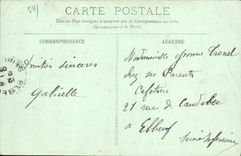 59
CARTE POSTALE
Tous les Pays étrangers n'acceptent pas la Correspondance au recto
(Se renseigner à la Poste)
CORRESPONDANCE
ADRESSE
Amitiés sincères
Gabrielle
Mademoiselle Yvonne
chez ses Parents
Cafetiers
21 rue de Caudebec
à Elbeuf
Seine Inférieure